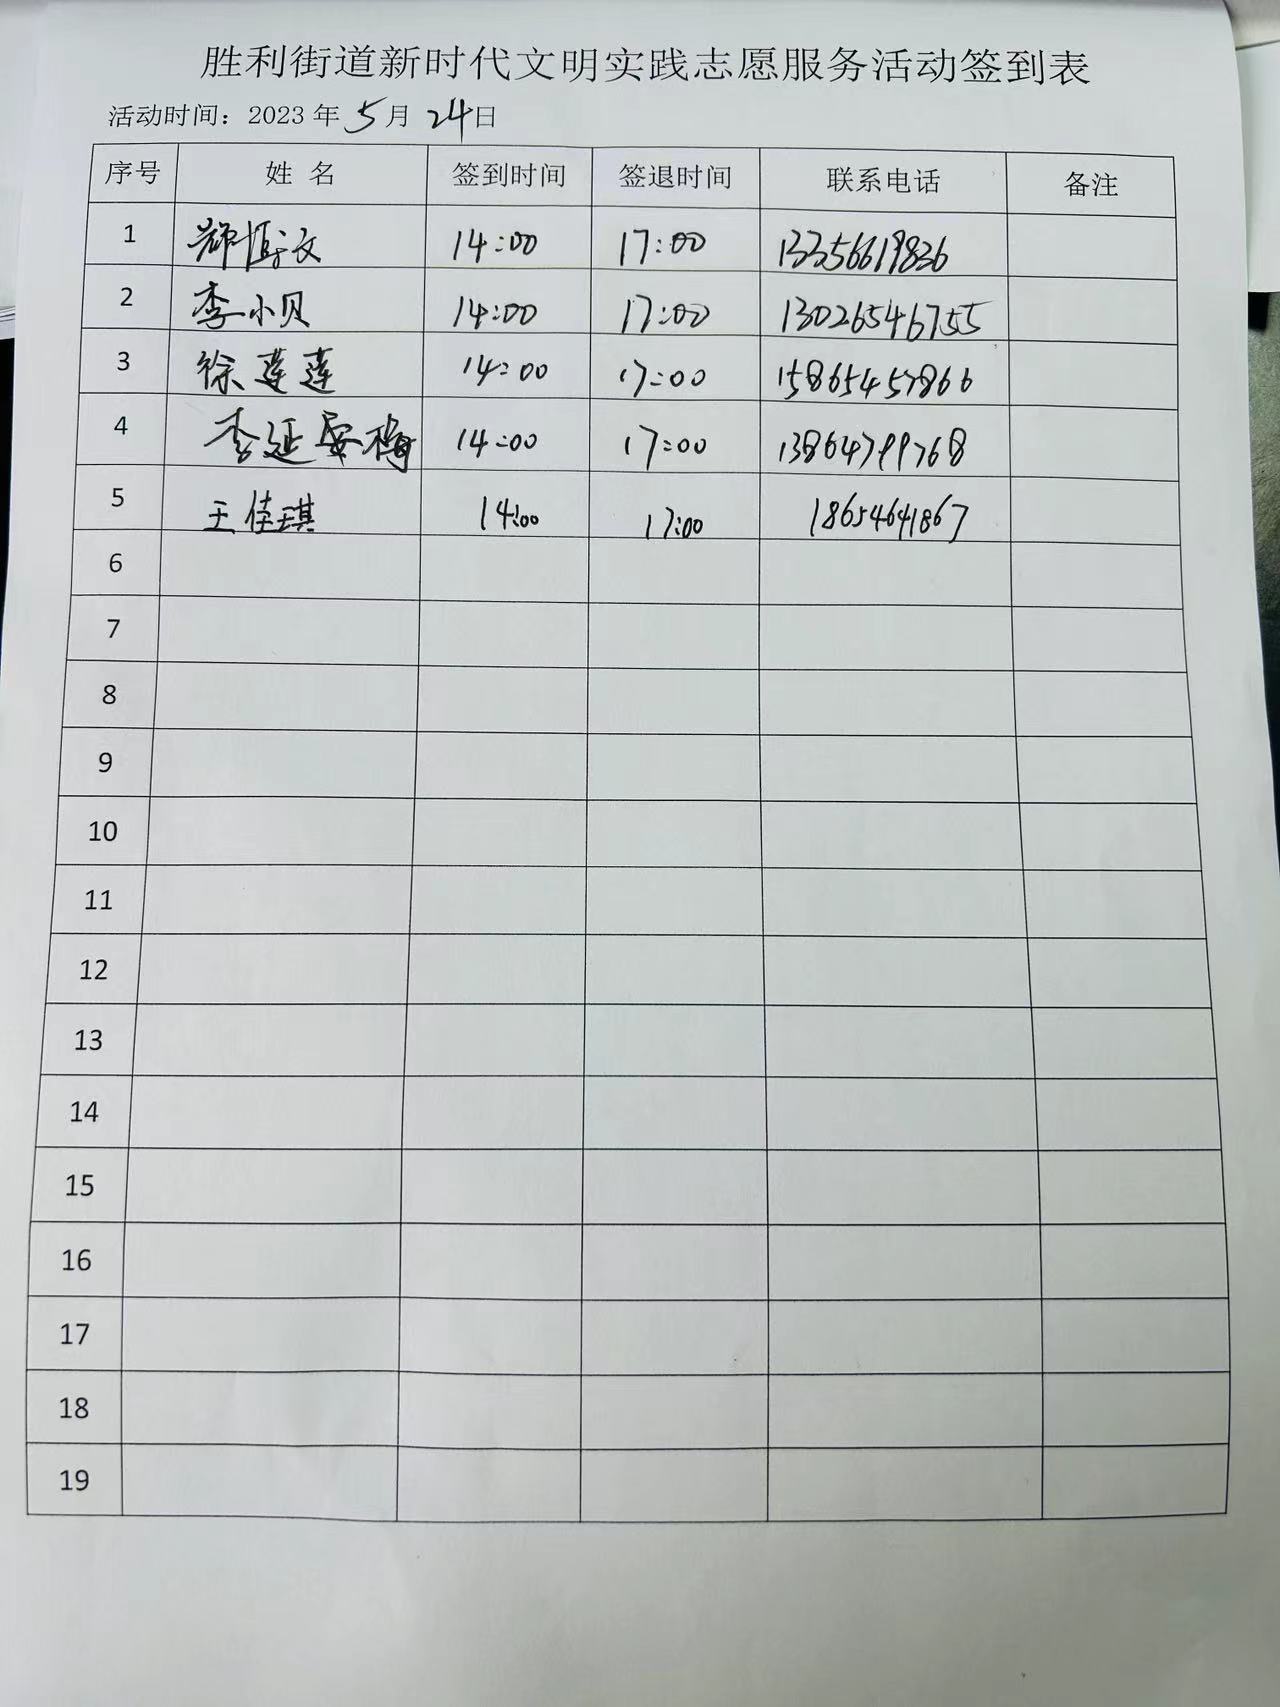 胜利街道新时代文明实践志愿服务活动签到表
活动时间：2023 年 5 月 24 日
序号 姓 名 签到时间 签退时间 联系电话 备注
1 文 14:00 17:00 13356619836
2 李小贝 14:00 17:00 13026546755
3 徐莲莲 14:00 17:00 15865457866
4 李延 梅 14:00 17:00 13864799768
5 王佳琪 14:00 17:00 18654641867
6
7
8
9
10
11
12
13
14
15
16
17
18
19